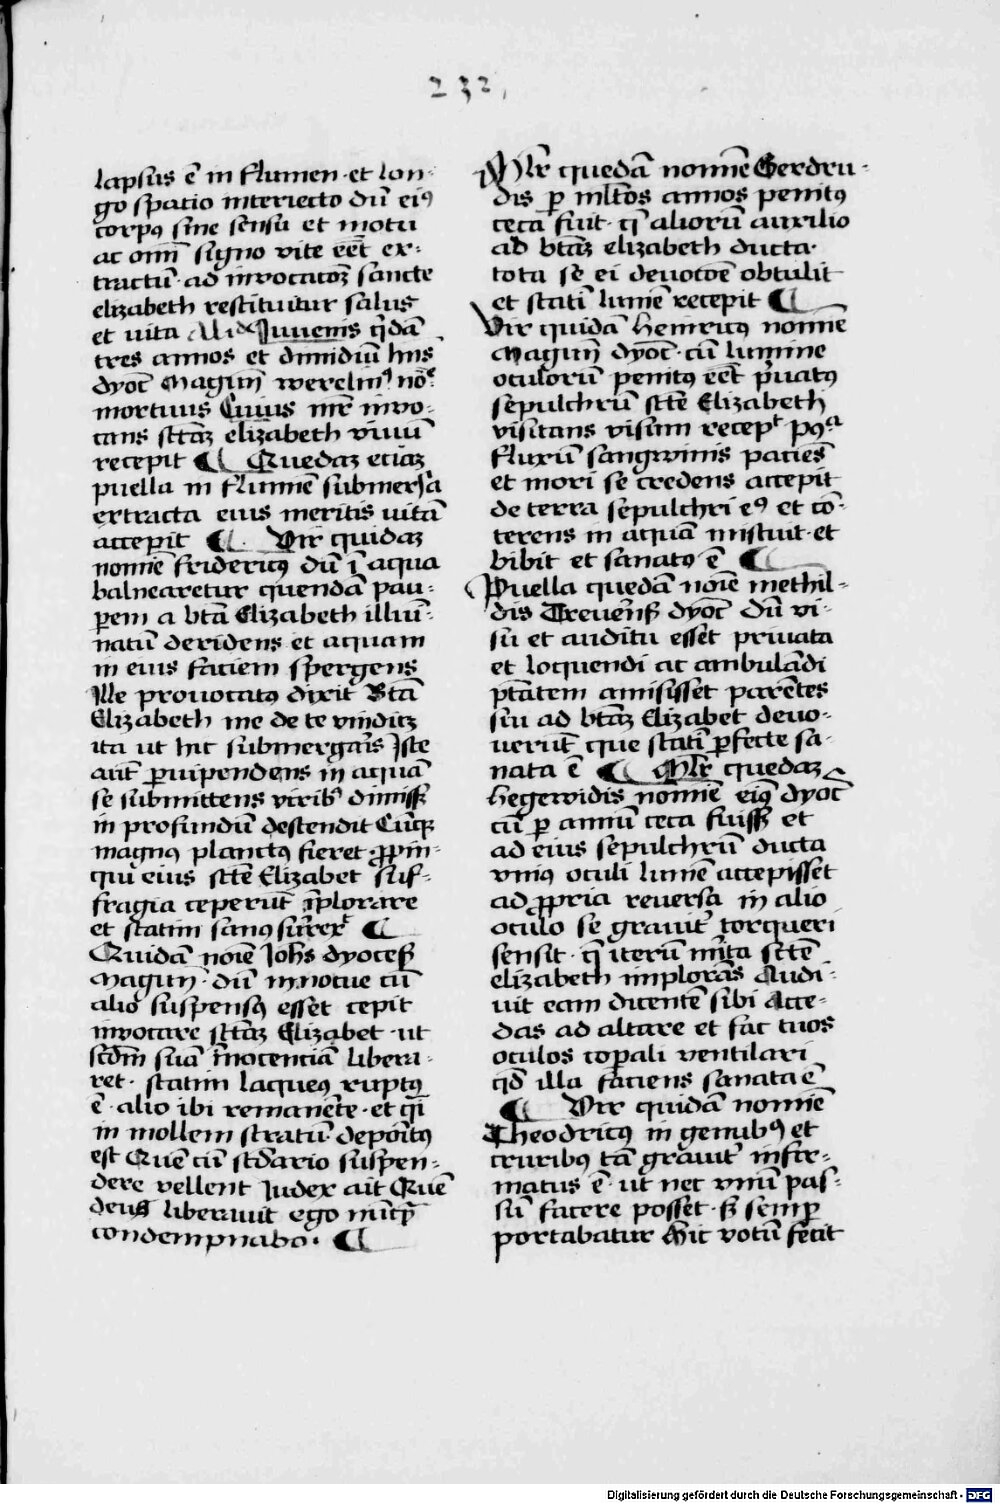 232
lapsus ē in flumen · et lon-
go spatio interiecto dū eiꝰ
corpꝰ sine sensu et motu
ac om̄i signo vite eēt ex-
tractū · ad invocacōꝫ sancte
elizabeth restituitur salus
et vita Aliꝰ Juvenis q̄dā
tres annos et dimidiū hn̄s
dyoc̄ Magūn̄ werelinꝰ nōe
mortuus Cuius mr̄ invo-
cans sctāꝫ elizabeth vivū
recepit ¶ Quedaꝫ eciaꝫ
puella in flumīe submersa
extracta eius meritis vitā
accepit ¶ · Vir quidaꝫ
nomīe fridericꝰ dū ī aqua
balnearetur quendā pau-
ꝑem a btā Elizabeth illuī-
natū deridens et aquam
in eius faciem spergens
Ille provocatꝰ dixit Btā
Elizabeth me de te vindicꝫ
ita ut hic submergaris Iste
aut̄ ꝑuipendens in aquā
se submittens viribꝰ dimissꝭ
in profundū descendit Cūqꝫ
magnꝰ planctꝰ fieret ꝓpin-
qui eius scte Elizabet suf-
fragia ceperūt īplorare
et statim sanꝰ surrexᵗ ¶
Quidā noīe Johēs dyocesꝭ
Magūtī · dū in nocte cū
alio suspensꝰ esset cepit
invocare sctāꝫ Elizabet · ut
scdm̄ suā īnocenciā libera-
ret · statim laqueꝰ ruptꝰ
ē · alio ibi remanēte · et q̄i
in mollem stratū · deponitꝰ
est Quē cū scdario suspen-
dere vellent Judex ait Quē
deus liberavit ego nūq̄
condempnabo · ¶
Mlr̄ quedā nomīe Gerdru-
dis ꝑ ml̄tos annos penitꝰ
ceca fuit · q̄ aliorū auxilio
ad btāꝫ elizabeth ducta ·
tota se ei devocōe obtulit
et statī lumē recepit ¶
Vir quidā Heinricꝰ nomīe
Magūn̄ dyoc̄ · cū lumine
oculorū penitꝰ eēt pͥvatꝰ
sepulchrū scte Elizabeth
visitans visum recepᵗ pꝰqᵃ
fluxū sangwinis paciēs
et mori se credens accepit
de terra sepulchri eꝰ et cō-
terens in aquā miscuit · et
bibit et sanatꝰ ē ¶
Puella quedā noīe methil-
dis Treverēsꝭ dyoc̄ dū vi-
su et auditu esset privata
et loquendi ac ambulādi
ptātem amisisset parētes
sui ad btāꝫ Elizabet devo-
verūt que statī ꝑfecte sa-
nata ē ¶ Mlr̄ quedaꝫ
Hegewidis nomīe eiꝰ dyoc̄
cū ꝑ annū ceca fuissꝫ et
ad eius sepulchrū ducta
vniꝰ oculi lumē accepisset
ad ꝓpria reversa in alio
oculo se gravitͥ torqueri
sensit · q̄ iterū mͥta scte
elizabeth implorās Audi-
vit eam dicentē sibi Acce-
das ad altare et fac tuos
oculos coꝑali ventilari
qd̄ illa faciens sanata ē
¶ Vir quidā nomīe
Theodricꝰ in genubꝰ et
cruribꝰ tā gravitͥ infir-
matus ē · ut nec vnū pas-
sū facere posset · sꝫ semꝑ
portabatur Hic votū fecit
Digitalisierung gefördert durch die Deutsche Forschungsgemeinschaft - DFG